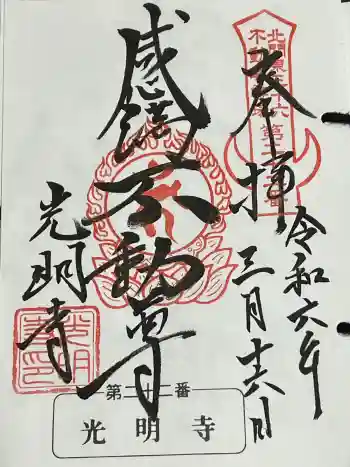 北關東三十六
不動尊霊場
第二十二番
奉拝
令和六年
三月十六日
不動尊
光明寺
第二十二番
光明寺